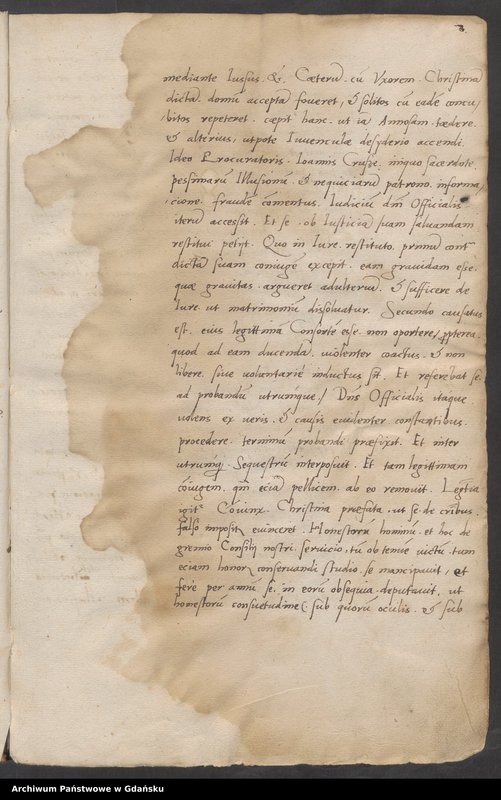 8
mediante Iussus. &. Cæterũ. cũ Vxorem. Christinã
dictã. domũ acceptã foueret, & solitos cũ eadẽ concu,
bitos repeteret. cæpit hanc. ut iã Annosam. tædere.
& alterius, utpote Iuuenculæ desyderio accendi.
Ideo Procuratoris. Ioannis Cruse. iniquo sacerdote
pessimarũ Illusionũ. & nequiciarũ patrono. informa,
cione. fraudẽ comentus. Iudiciũ dñi Officialis
iterũ accessit. Et se. ob Iusticiã suam saluandam
restitui petijt. Quo in Iure. restituto. primũ cont
dictã suam coniugẽ excepit. eam grauidam esse.
quæ grauitas. argueret adulteriũ. & sufficere de
Iure. ut matrimoniũ dissoluatur. Secundo causatus
est. eius legittima Consorte esse. non oportere, propterea.
quod ad eam ducendã. uiolenter coactus. & non
libere. siue voluntariè inductus sit. Et referebat se
ad probandũ utrumque / Dñs Officialis itaque
volens ex veris. & causis euidenter constantibus.
procedere. terminũ probandi præfixit. Et inter
utrumque. Sequestrũ interposuit. Et tam legittimam
coniugem, qm̃ eciã pellicem. ab eo remouit. Legttia
igitr Coniunx. Christina præfata. ut se. de cribus.
falso impositis euinceret. Honestorũ hominũ. et hoc de
gremio Consilij nostri. seruicio, tũ ob tenuẽ victũ. tum
eciam honoris conseruandi studio. se mancipauit, et
ferè per annũ. se. in eorũ obsequia. deputauit. ut
honestorũ consuetudine (. sub quorũ oculis. & sub
Archiwum Państwowe w Gdańsku